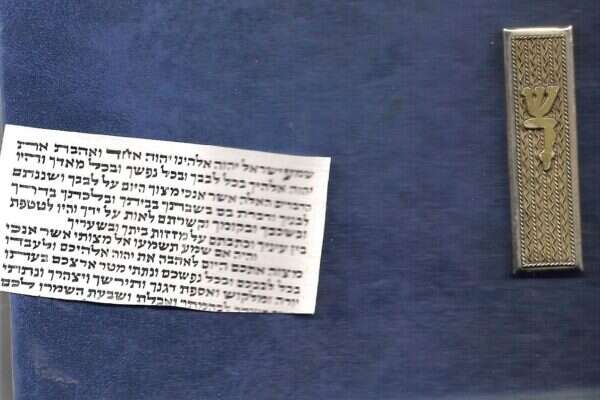 שמע ישראל יהוה אלהינו יהוה אחד ואהבת את
יהוה אלהיך בכל לבבך ובכל נפשך ובכל מאדך והיו
הדברים האלה אשר אנכי מצוך היום על לבבך ושננתם
לבניך ודברת בם בשבתך בביתך ובלכתך בדרך
ובשכבך ובקומך וקשרתם לאות על ידך והיו לטטפת
בין עיניך וכתבתם על מזזות ביתך ובשעריך
והיה אם שמע תשמעו אל מצותי אשר אנכי
מצוה אתכם היום לאהבה את יהוה אלהיכם ולעבדו
בכל לבבכם ובכל נפשכם ונתתי מטר ארצכם בעתו
יורה ומלקוש ואספת דגנך ותירשך ויצהרך ונתתי
לבהמתך ואכלת ושבעת השמרו לכם
שדי